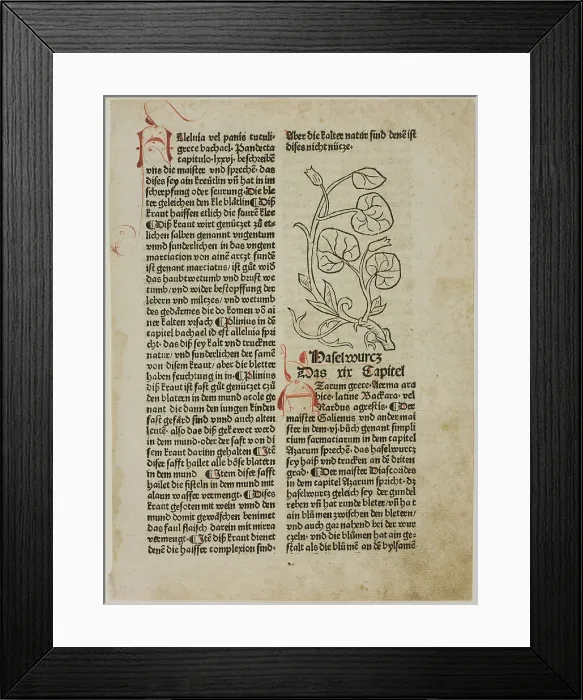 Alleluia vel panis cuculi·
grece bachael· Pandecta
capitulo·lxxvj·beschreibē
vns die maister vnd sprechē· das
dises sey ain kreütlin vn̄ hat in im
scherpffung oder seurung·Die ble
ter geleichen den kle blätlin¶Diß
kraut haissen etlich die saurē klee
¶Diß kraut wirt genützet zů et-
lichen salben genannt vngentum
vnnd sunderlichen in das vngent
marciation von ainē arczt fundē
ist genant marciatus/ ist gůt wid̄
das haubtwetumb vnd brust we
tumb/vnd wider bestopffung der
lebern vnd milczes/ vnd wetumb
des gedärmes die do komen vō ai
ner kalten vrsach ¶Plinius in dē
capitel bachael id est alleluia spri
cht· das diß sey kalt vnd truckner
natur/ vnd sunderlichen der samē
von disem kraut/ aber die bletter
haben feuchtung in in·¶Plinius
diß kraut ist fast gůt genützet czů
den blatern in dem mund acole ge
nant die dann den iungen kinden
fast gefärd sind vnnd auch alten
leutē· also das diß gekewet werd
in dem mund·oder der saft von di
sem kraut darinn gehalten ¶Itē
diser safft hailet alle böse blatern
in dem mund ¶Item diser safft
hailet die fisteln in dem mund mit
alaun wasser vermengt·¶Dises
kraut gesoten mit wein vnnd den
mund domit gewäschen benimet
das faul flaisch darein mit mirra
vermengt·¶Itē diß kraut dienet
denē die haisser complexion sind·
Aber die kalter natur sind denē ist
dises nicht nütze·
¶Haselwurcz
Das xix Capitel
Azarum grece·Aserma ara
bice·latine Baccara·vel
Nardus agrestis·¶Der
maister Galienus vnd ander mai
ster in dem·vj·bůch genant simpli
cium farmaciarum in dem capitel
Azarum sprechē· das haselwurcz
sey haiß vnd trucken an dē driten
grad·¶Der maister Diascorides
in dem capitel Azarum spricht·dz
haselwurcz geleich sey der gundel
reben vn̄ hat runde bleter/vn̄ ha t
ain blůmen zwischen den bletern/
vnd auch gar nahend bei der wur
czeln· vnd die blůmen hat ain ge-
stalt als die blůmē an dē bylsamē